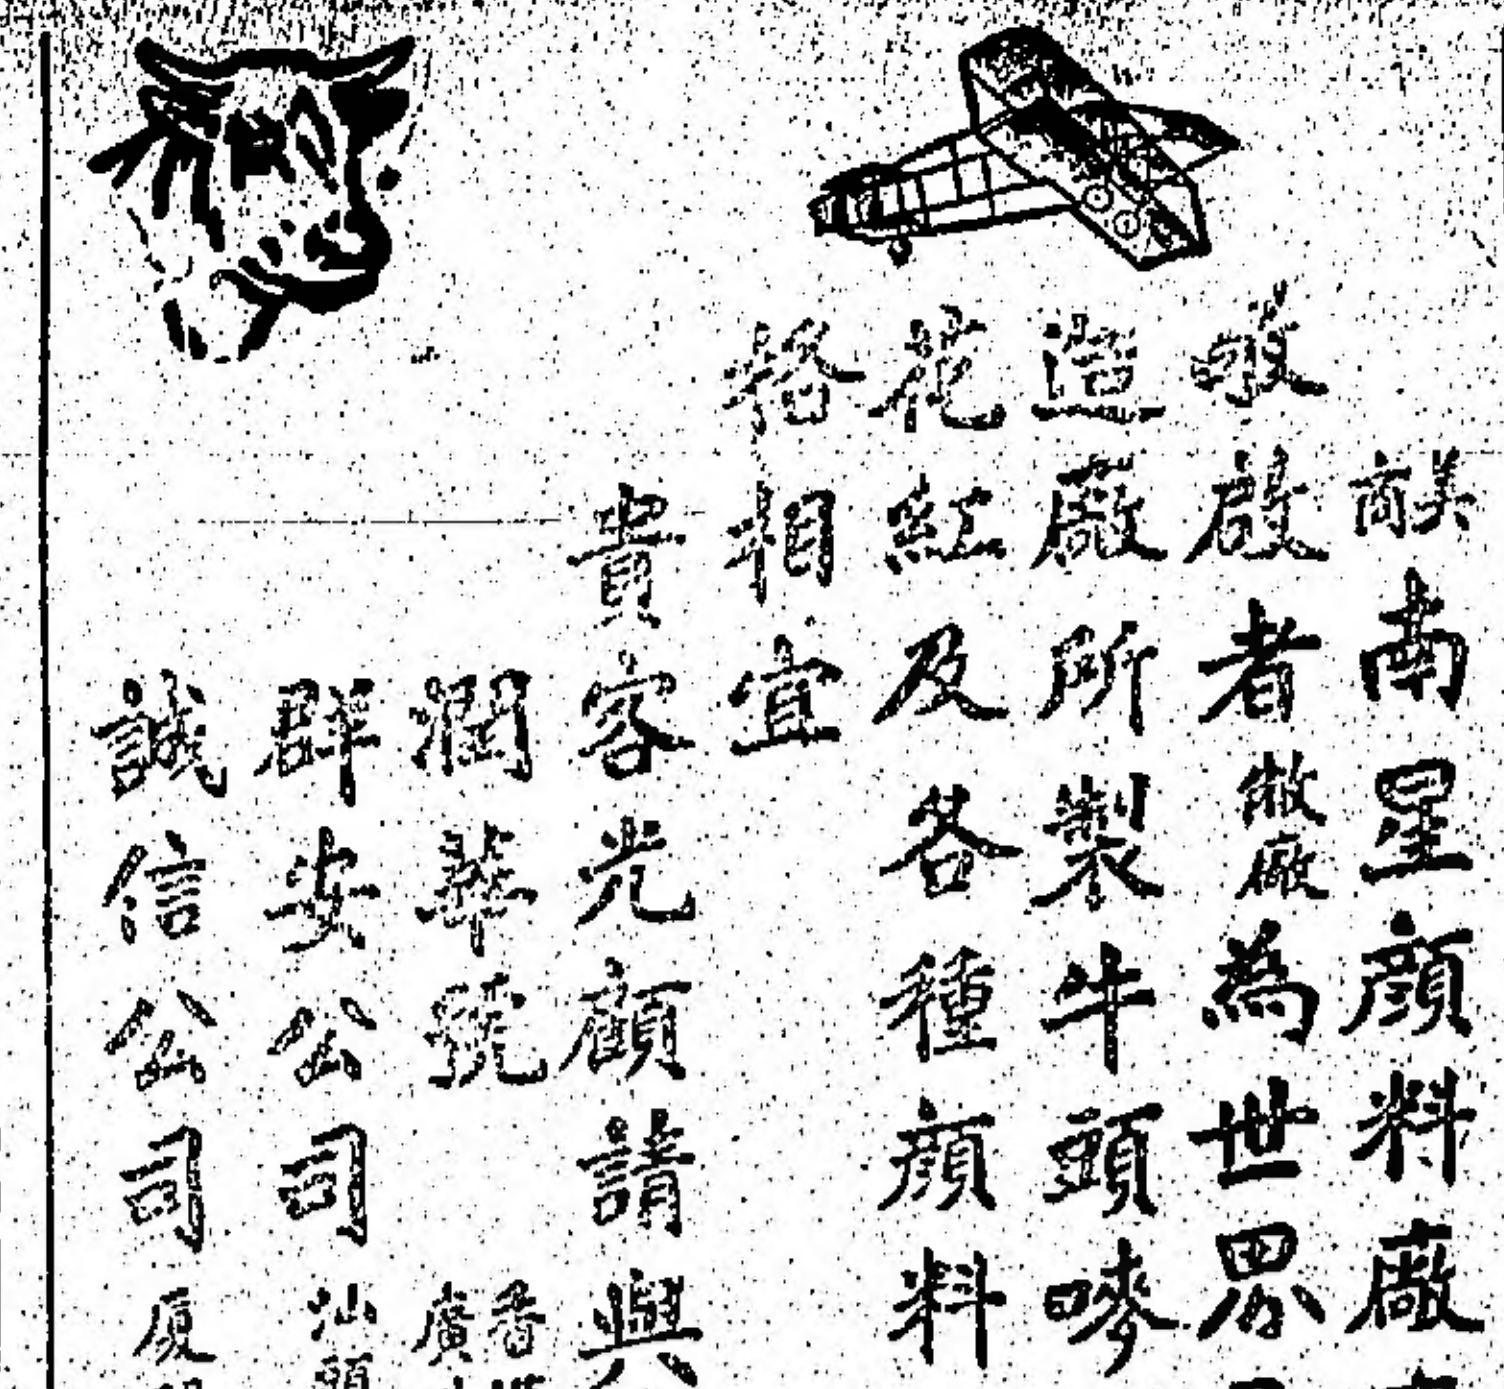 美商南星顏料廠
敬啟者敝廠為世界
造廠所製牛頭嘜
花紅及各種顏料
格相宜
貴客光顧請與
潤華號 香 廣
群安公司 汕頭
誠信公司 廈